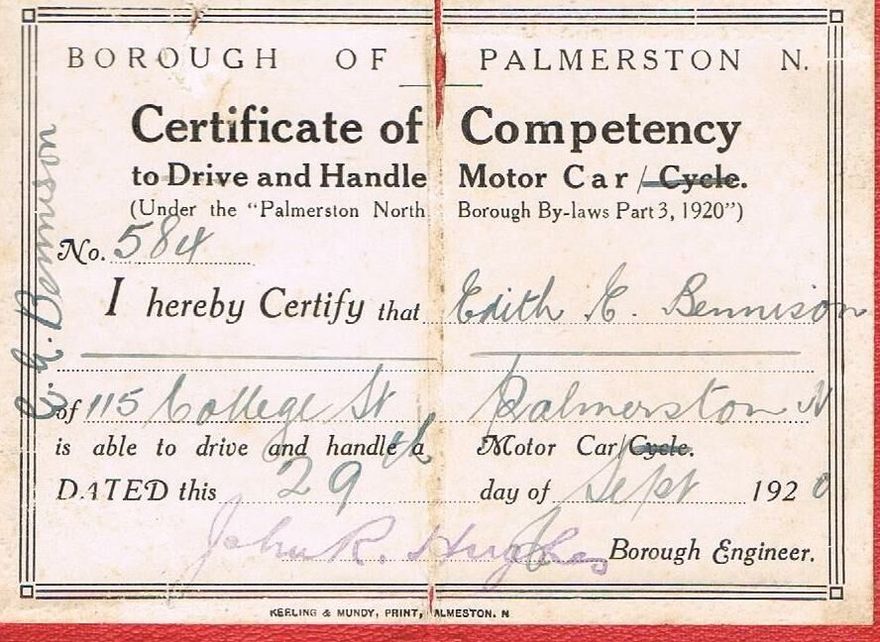 BOROUGH OF PALMERSTON N.
Certificate of Competency
to Drive and Handle Motor Car / Cycle.
(Under the "Palmerston North Borough By-laws Part 3, 1920")
No. 584
I hereby Certify that Edith E. Bennison
of 115 College St Palmerston N
is able to drive and handle a Motor Car/Cycle.
DATED this 29th day of Sept 1920
John R. Hughes Borough Engineer.
KEELING & MUNDY, PRINT, ALMESTON. N
E. E. Bennison